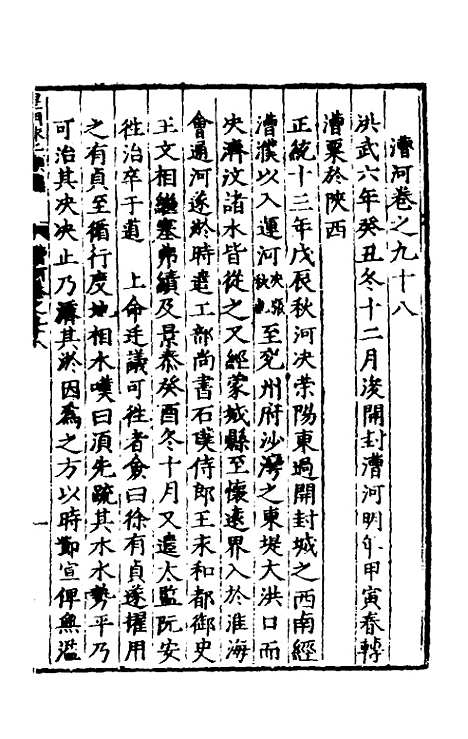 漕河卷之九十八
洪武六年癸丑冬十二月浚開封漕河明年甲寅春轉
漕粟於陝西
正統十三年戊辰秋河决滎陽東過開封城之西南經
漕濮以入運河至兖州府沙灣之東堤大洪口而
决濟汶諸水皆從之又經蒙城縣至懷遠界入於淮海
會通河遂淤時遣工部尚書石璞侍郎王永和都御史
王文相繼塞弗績及景泰癸酉冬十月又遣太監阮安
徃治卒于道 上命廷議可徃者僉曰徐有貞遂擢用
之有貞至循行度地相水嘆曰須先疏其水水勢平乃
可治其决决止乃濬其淤因為之方以時節宣俾無溢